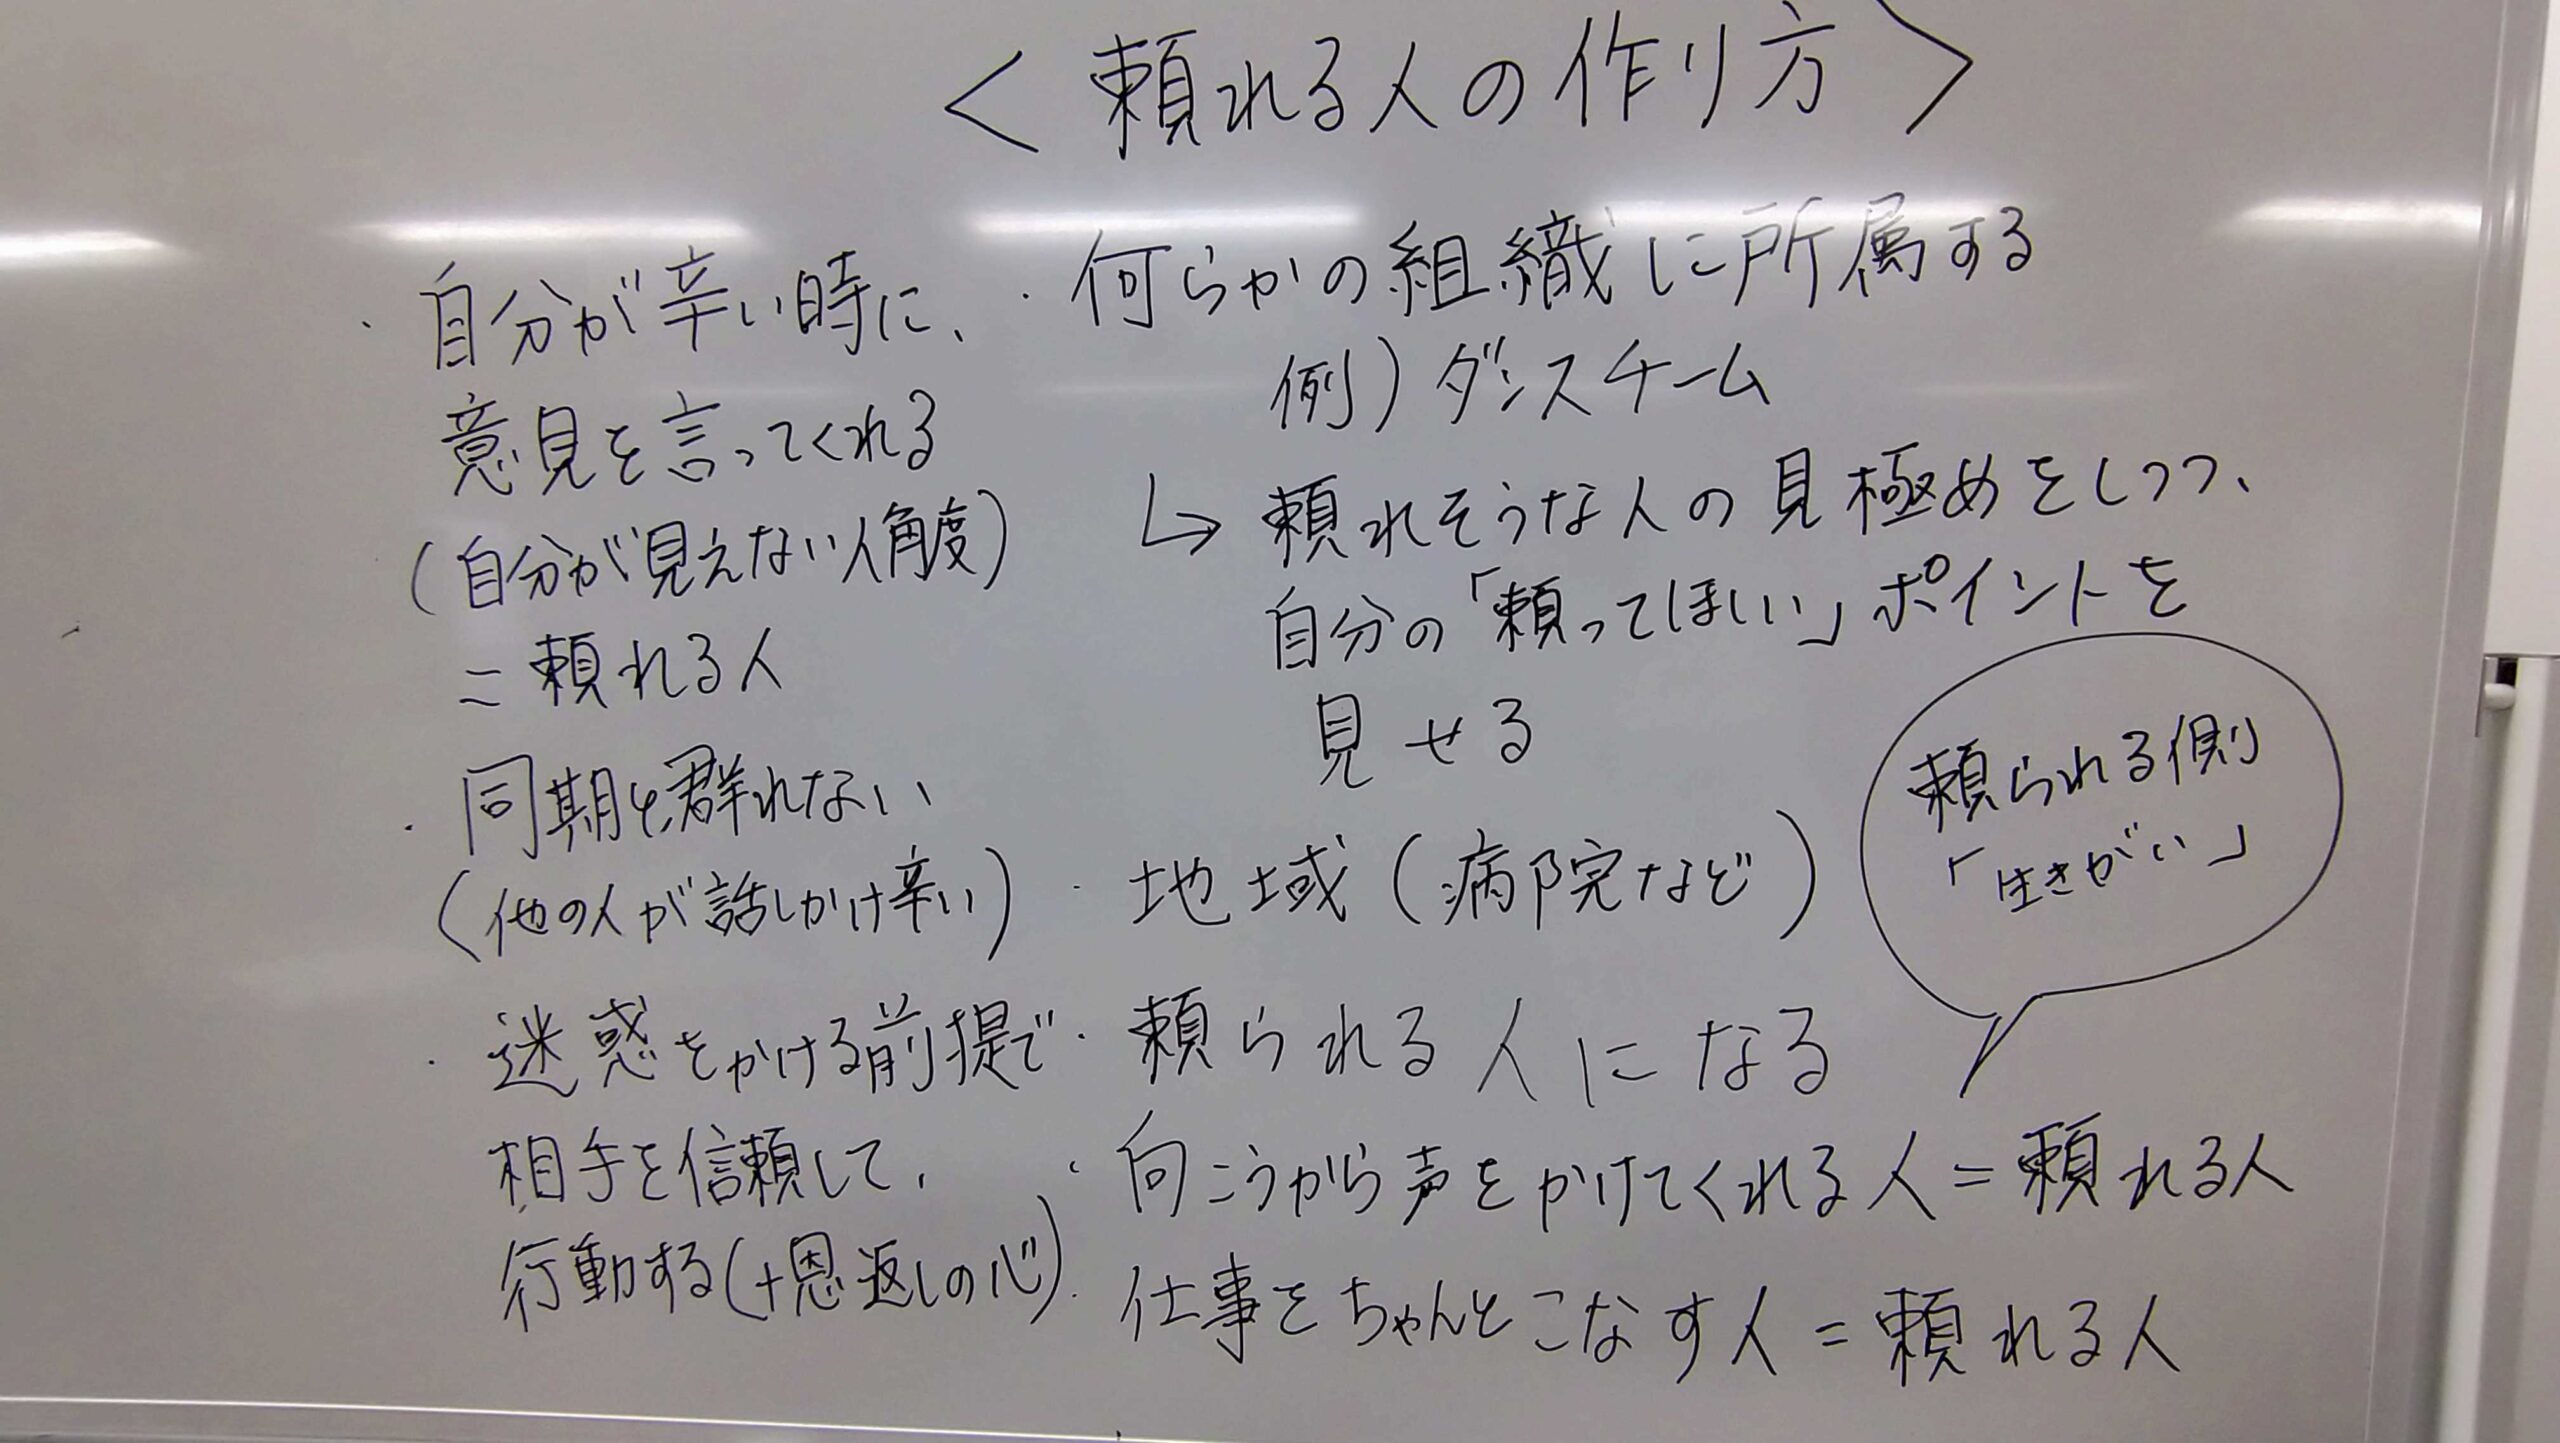 <頼れる人の作り方>
・自分が辛い時に、
意見を言ってくれる
(自分が見えない角度)
=頼れる人
・同期と群れない
(他の人が話しかけ辛い)
・迷惑をかける前提で
相手を信頼して、
行動する(+恩返しの心)
・何らかの組織に所属する
例)ダンスチーム
↳頼れそうな人の見極めをしつつ、
自分の「頼ってほしい」ポイントを
見せる
・地域(病院など)
・頼られる人になる
頼られる側
「生きがい」
・向こうから声をかけてくれる人=頼れる人
・仕事をちゃんとこなす人=頼れる人